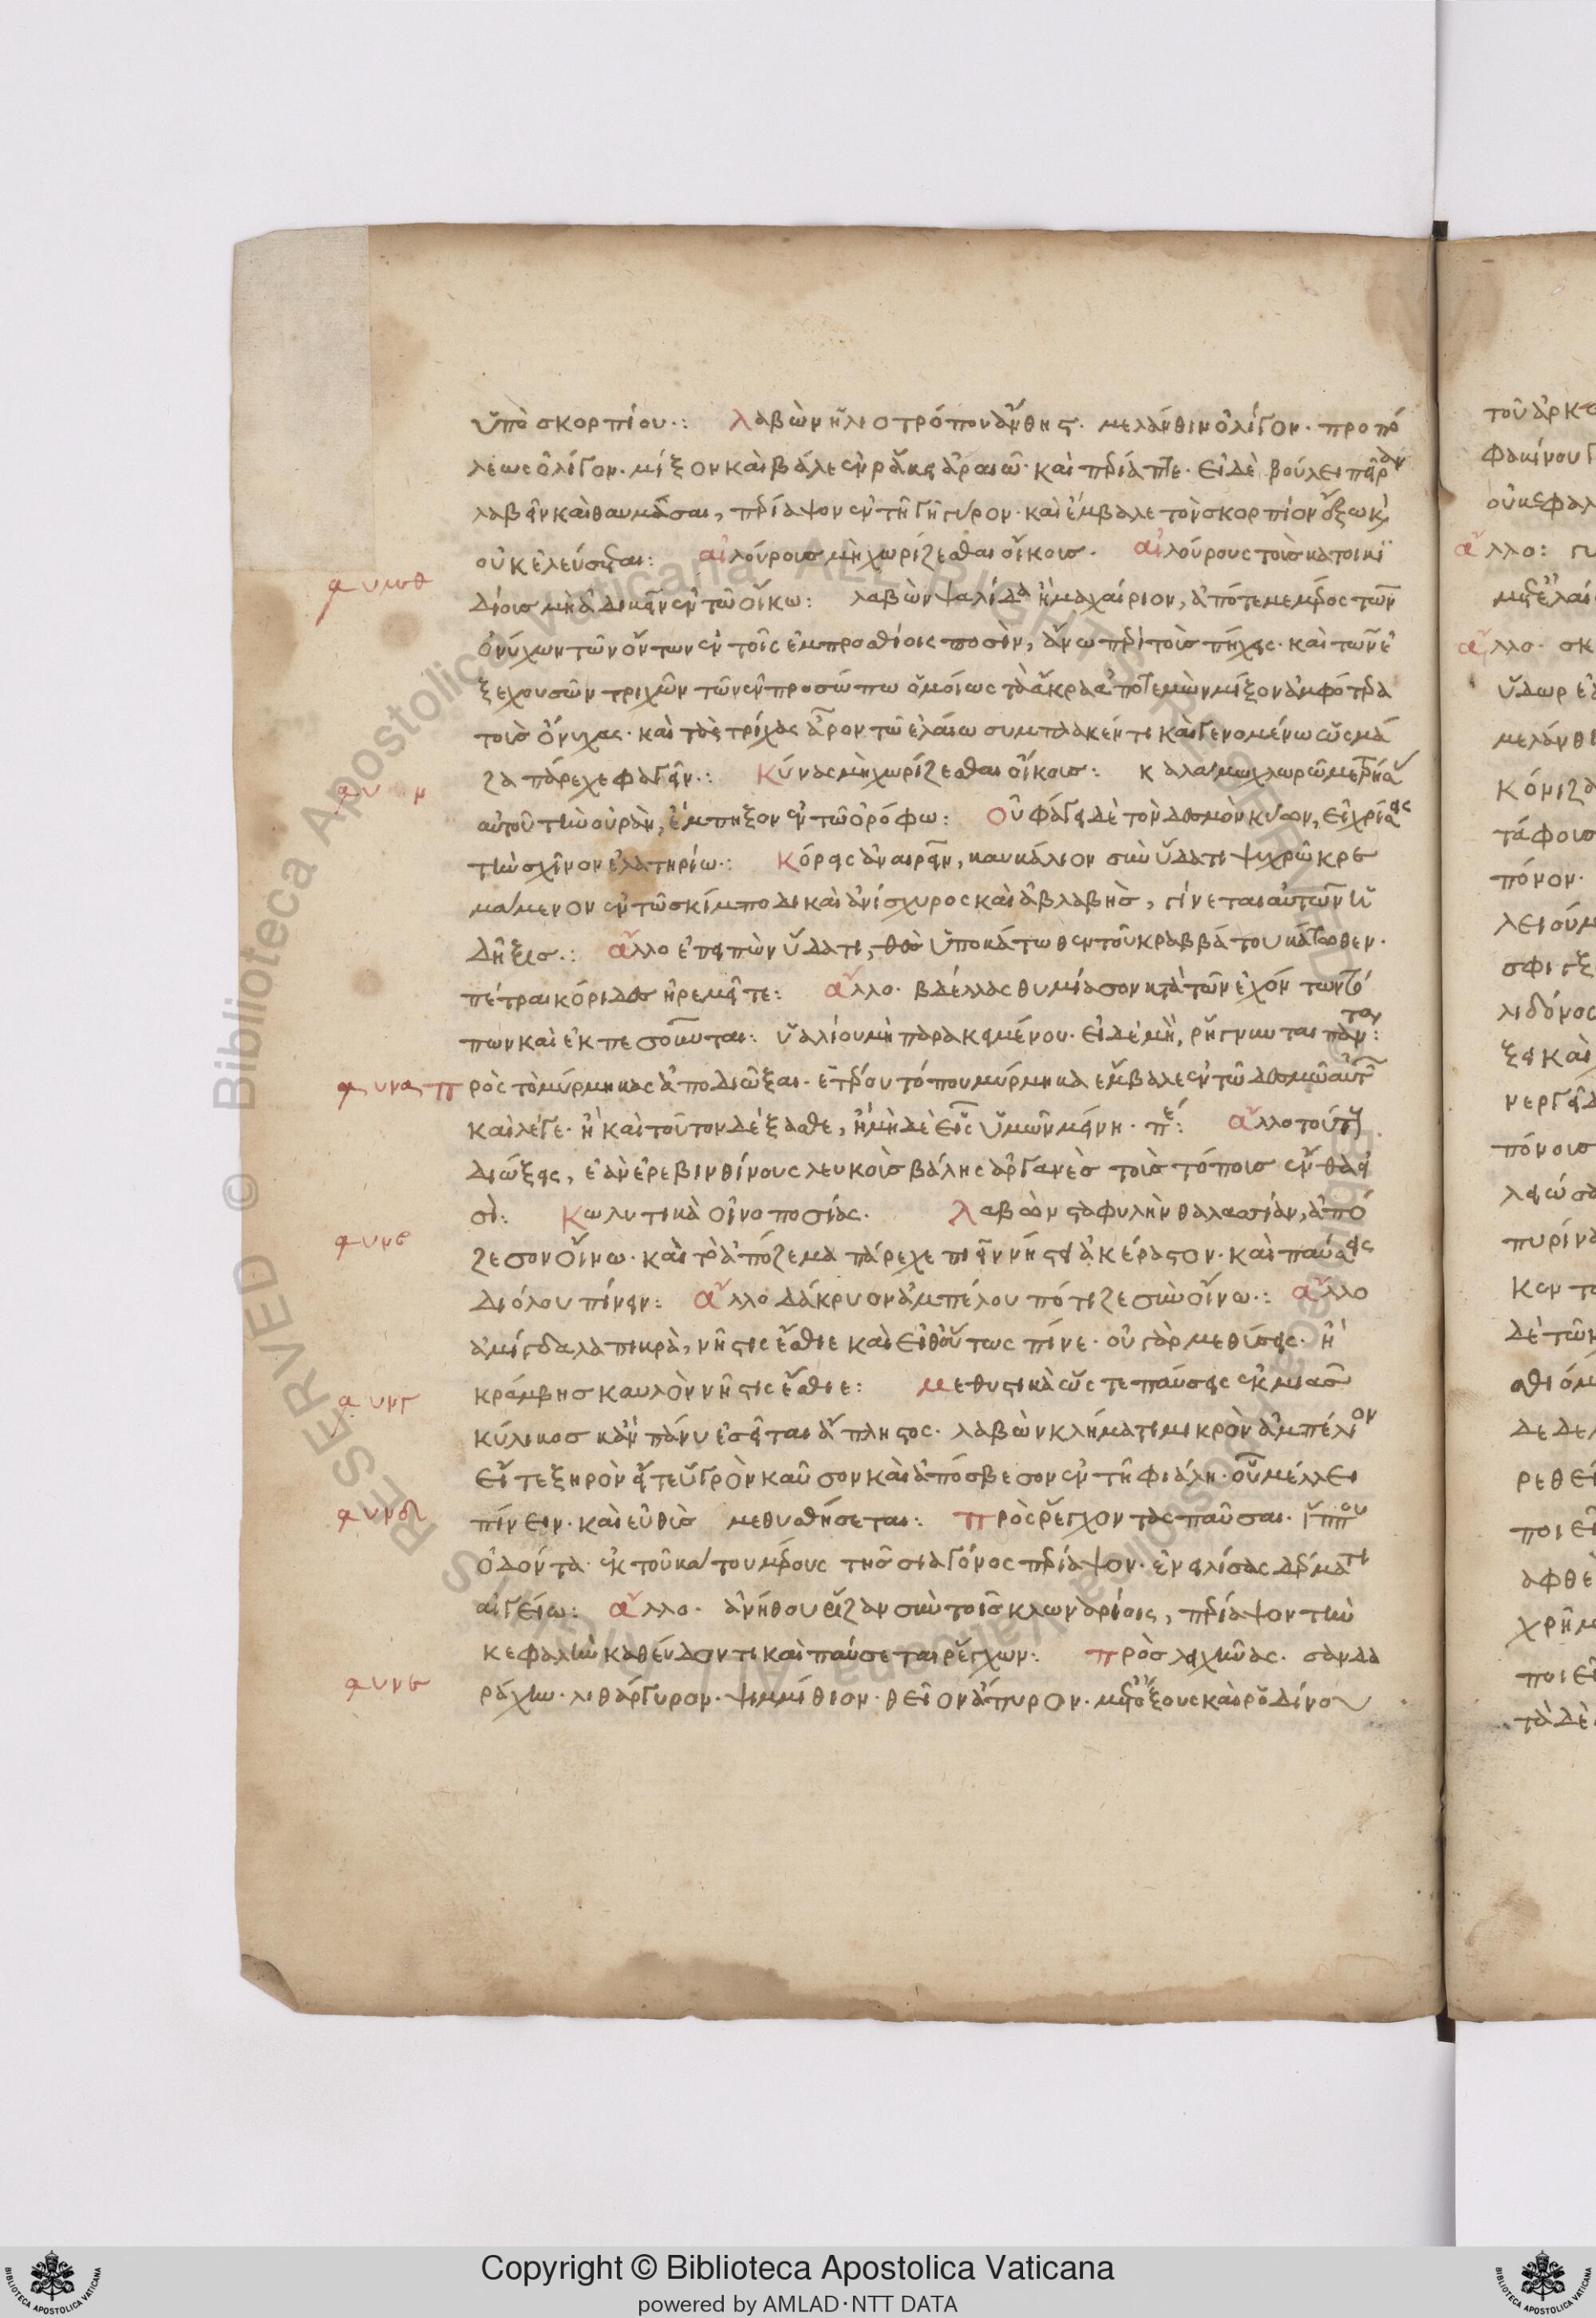 ὑπὸ σκορπίου·: λαβὼν ἡλιοτρόπου ἄνθης· μελάνθιν ὀλίγον· προπό
λεως ὀλίγον· μίξον καὶ βάλε ἐν ῥάκει ἀραιῶ· καὶ περίαπτε· εἰ δὲ βούλει πεῖραν
λαβεῖν καὶ θαυμάσαι, περίαψον ἐν τῆ γῆ γύρον· καὶ ἔμβαλε τὸν σκορπίον ἔξω καὶ
οὐκ ἐλεύσεται: αἰλούρους μὴ χωρίζεσθαι οἴκοις· αἰλούρους τοὺς κατοικι
δίους μὴ ἀδικεῖν ἐν τῶ οἴκω: λαβὼν ψαλίδα ἢ μαχαίριον, ἀπότεμε μέρος τῶν
ὀνύχων τῶν ὄντων ἐν τοῖς ἐμπροσθίοις ποσὶν, ἄνω περὶ τοὺς πήχεις· καὶ τῶν ἐ
ξεχουσῶν τριχῶν τῶν ἐν προσώπω ὁμοίως τὰ ἄκρα ἀποτεμὼν μίξον ἀμφότερα
τοὺς ὄνυχας· καὶ τὰς τρίχας ἆρον τῶ ἐλαίω συμπλακέντι καὶ γενομένω ὡς μά
ζα πάρεχε φαγεῖν·: κύνας μὴ χωρίζεσθαι οἴκοις: καλάμω χλωρῶ
αὐτοῦ τὴν οὐρὰν, ἔμπηξον ἐν τῶ ὀρόφω: οὐ φάγει δὲ τὸν δεσμὸν κύων, εἰ χρίσεις
τὴν σχῖνον ἐλατηρίω·: κόρεις ἀναιρεῖν, καυκάλιον σὺν ὕδατι ψυχρῶ κρε
μάμενον ἐν τῶ σκίμποδι καὶ ἀνίσχυρος καὶ ἀβλαβὴς, γίνεται αὐτῶν ἡ
δῆξις·: ἄλλο ἐπειπὼν ὕδατι, θὲς ὑποκάτωθεν τοῦ κραββάτου κάτωθεν·
πέτραι κόριδες ἠρεμεῖτε: ἄλλο· βδέλλας θυμίασον κατὰ τῶν ἐχόντων τό
πων καὶ ἐκπεσοῦνται: ὑαλίου μὴ παρακειμένου· εἰ δὲ μὴ, ῥήγνυνται πάντα:
πρὸς τὸ μύρμηκας ἀποδιῶξαι· ἑτέρου τόπου μύρμηκα ἔμβαλε ἐν τῶ
καὶ λέγε· ἢ καὶ τοῦτον δέξασθε, ἢ μὴδὲ εἷς ὑμῶν μείνη· ἄλλο τούτους
διώξεις, ἐὰν ἐρεβινθίνους λευκοὺς βάλης ὀργανὲς τοὺς τόποις ἔνθα εἰ
σὶ: κωλυτικὰ οἰνοποσίας· λαβὼν σταφυλὴν θαλασσίαν, ἀπό
ζεσον οἴνω· καὶ τὸ ἀπόζεμα πάρεχε πιεῖν νήστει ἀκέραστον· καὶ παύσεις
διόλου πίνειν: ἄλλο δάκρυον ἀμπέλου πότιζε σὺν οἴνω·: ἄλλο
ἀμύγδαλα πικρὰ, νῆστις ἔσθιε καὶ εἶθ' οὕτως πίνε· οὐ γὰρ μεθύσεις· ἢ
κράμβης καυλὸν νῆστις ἔσθιε: μεθυστικὰ ὥστε παύσεις ἐκ μιᾶς
κύλικος κἂν πάνυ ἐσεῖται ἄπληστος· λαβὼν κλήματι μικρὸν ἀμπέλιον
εἴτε ξηρὸν εἴτε ὑγρὸν καῦσον καὶ ἀπόσβεσον ἐν τῆ φιάλη· οὗ μέλλει
πίνειν· καὶ εὐθὺς μεθυσθήσεται: πρὸς ῥέγχοντας παῦσαι· ἵππου
ὀδόντα· ἐκ τοῦ κάτου μέρους τῆς σιαγόνος περίαψον· ἐνειλίσας δέρματι
αἰγείω: ἄλλο· ἀνήθου ῥίζαν σὺν τοῖς κλωναρίοις, περίαψον τὴν
κεφαλὴν καθεύδοντι καὶ παύσεται ῥέγχων: πρὸς λειχῆνας· σανδα
ράχην· λιθάργυρον· ψιμμίθιον· θεῖον ἄπυρον· μετὰ ὄξους καὶ ῥοδίνου
φυμθ
φυν
φυνα
φυνβ
φυνγ
φυνδ
φυνε
τοῦ ἀρκτ
φακίνου
οὐ κεφαλ
ἄλλο:
μετὰ ἐλαί
ἄλλο· σκ
ὕδωρ
μελάνθι
κόνιζα
τάφοις
πόνον·
λειούμ
λιδόνος
ξει καὶ
πόνοις
πυρίνα
κεν τ
δὲ τῶν
σθιόμ
δεδε
ρεθεί
ποιεῖ
ἀφθέ
χρῆμ
ποιεῖ
τὰ δὲ
Copyright © Biblioteca Apostolica Vaticana
powered by AMLAD·NTT DATA